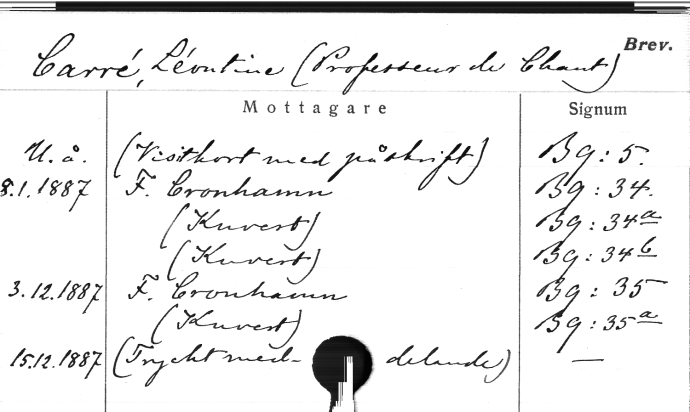 Brev.
Carré, Léontine (Professeur de Chant)
Mottagare Signum
U. å. (Visitkort med påskrift) Bq: 5.
8.1.1887 F. Cronhamn Bq: 34.
(Kuvert) Bq: 34a
(Kuvert) Bq: 34b
3.12.1887 F. Cronhamn Bq: 35
(Kuvert) Bq: 35a
15.12.1887 (Tryckt med- delande) —